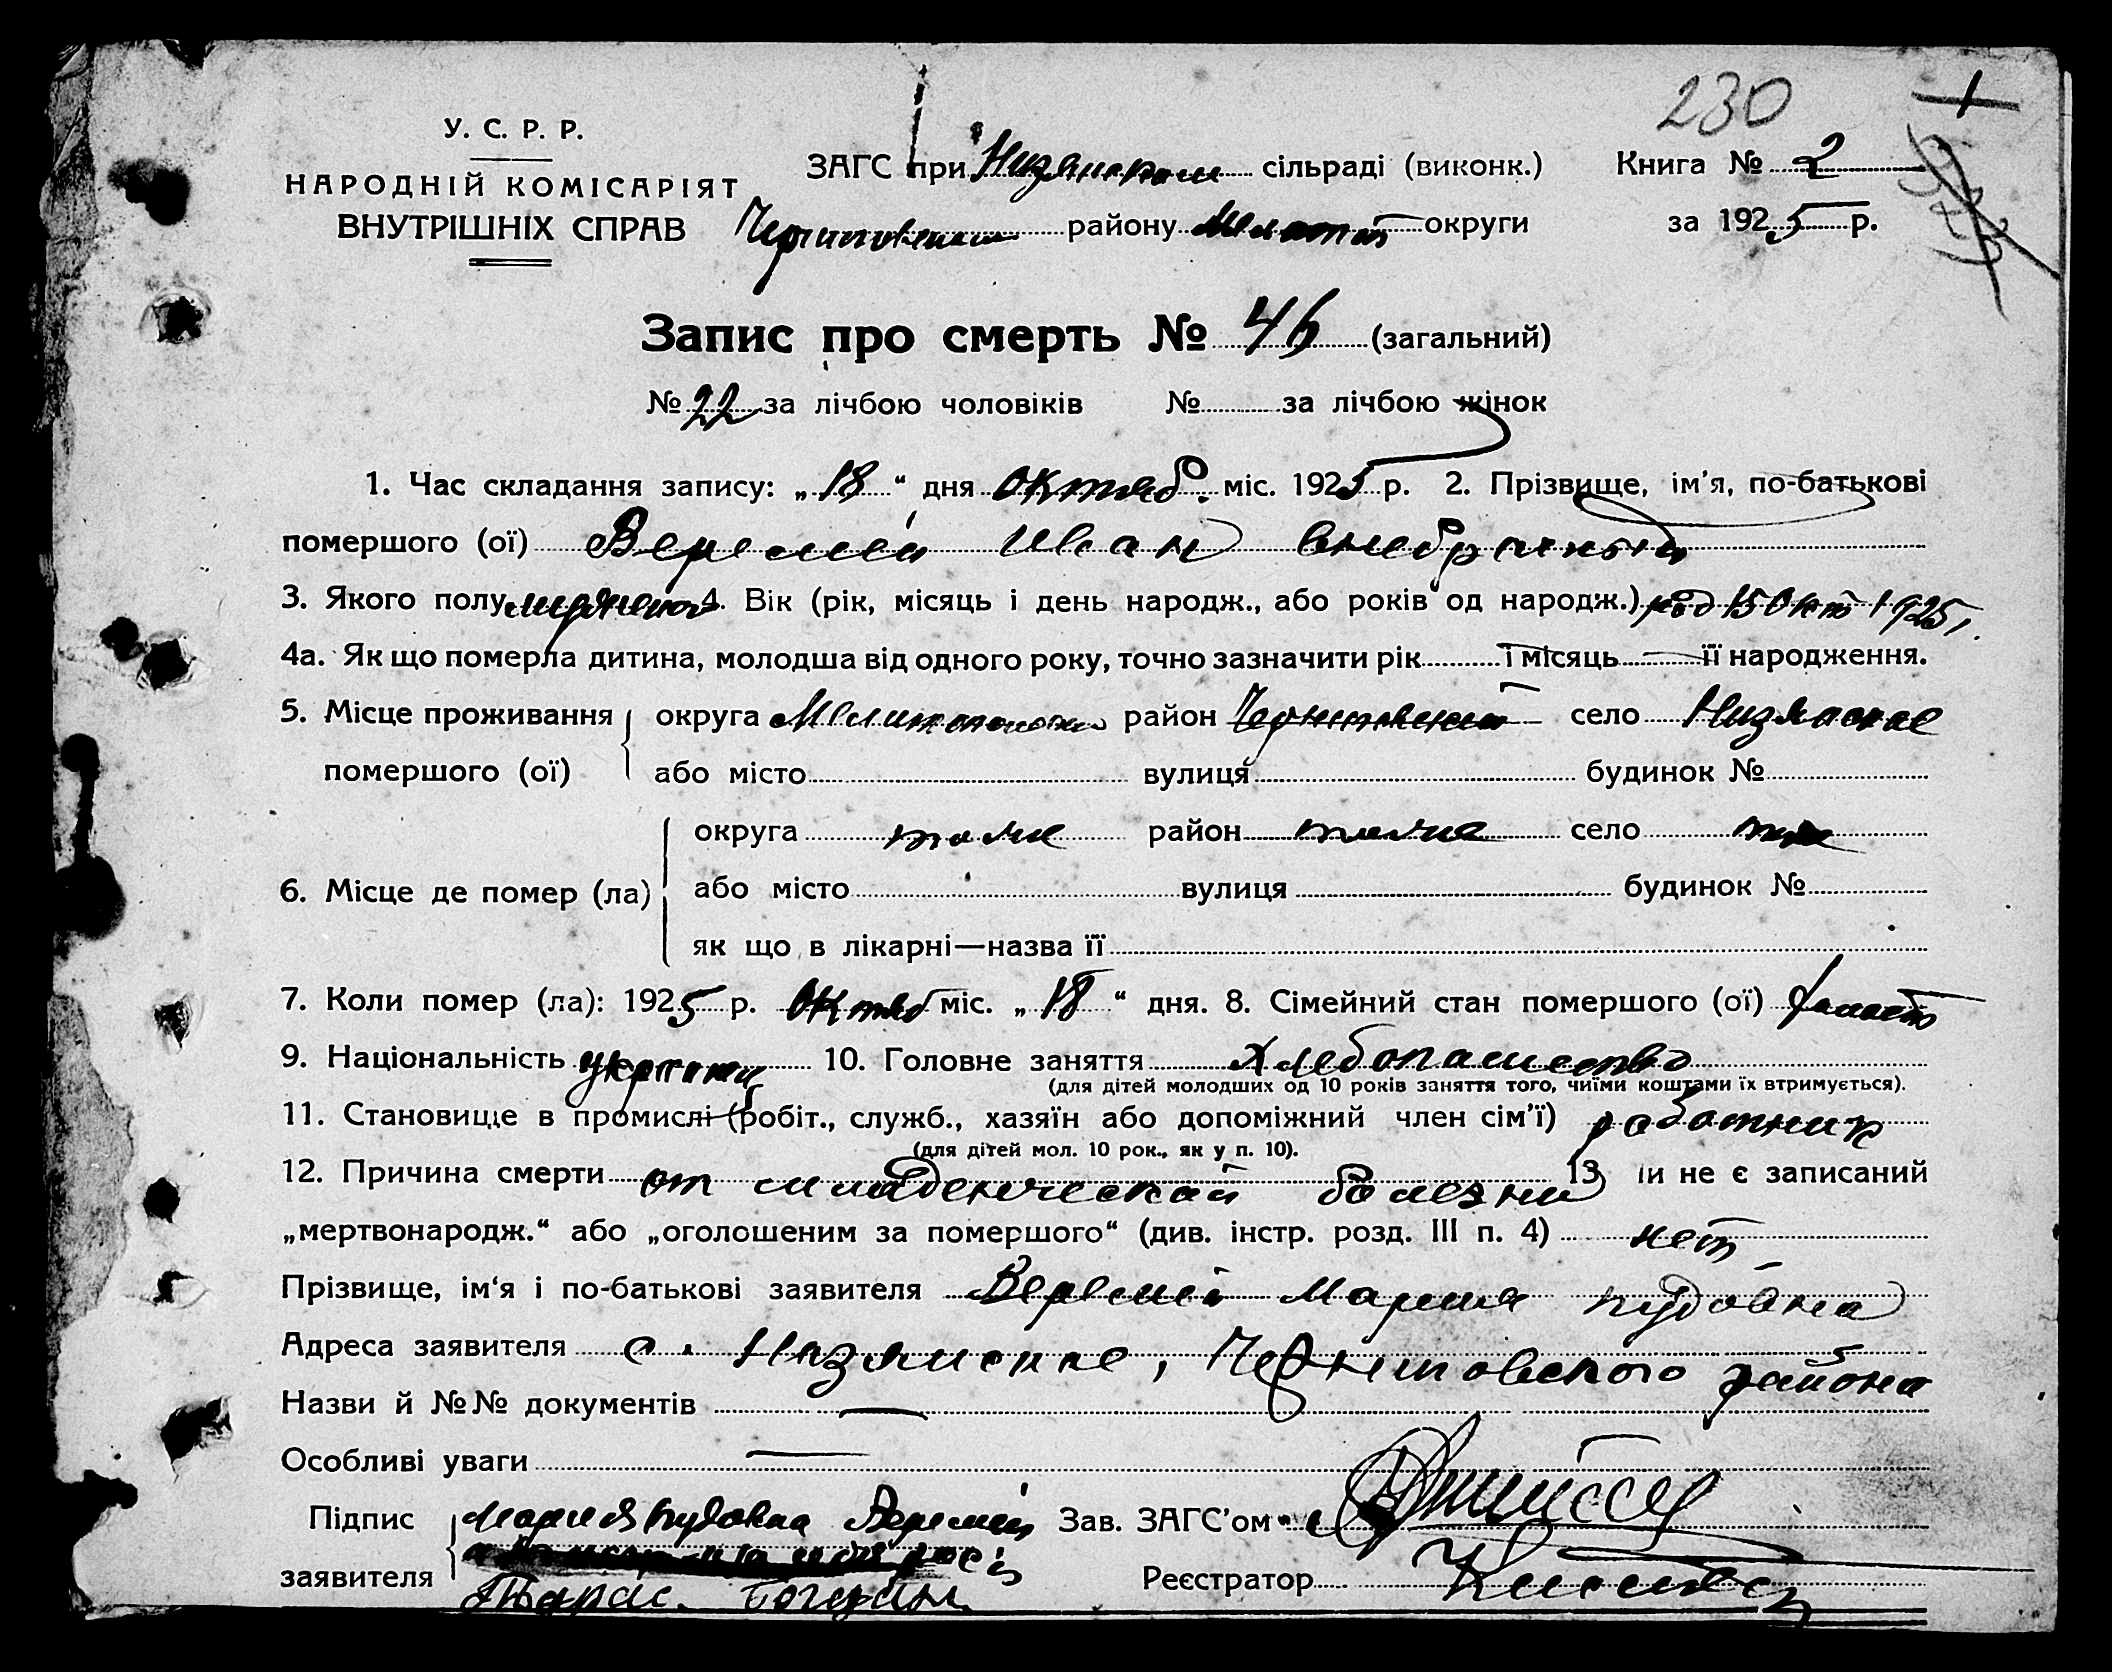 230
У. С. Р. Р.
НАРОДНІЙ КОМІСАРІЯТ
ВНУТРІШНІХ СПРАВ
ЗАГС при Низянском сільраді (виконк.) Книга № 2
Черниговском району Мелит округи за 1925 р.
Запис про смерть № 46 (загальний)
№ 22 за лічбою чоловіків № за лічбою жінок
1. Час складання запису: „ 18 “ дня октяб. міс. 1925 р. 2. Прізвище, ім'я, по-батькові
помершого (ої) Веремей Иван внебрачный
3. Якого полу мужеског 4. Вік (рік, місяць і день народж., або років од народж.) род 15 Окт 1925 г.
4а. Як що померла дитина, молодша від одного року, точно зазначити рік і місяць її народження.
5. Місце проживання округа район Черниговский село Низянское
помершого (ої) або місто вулиця будинок №
округа тоже район тоже село тоже
6. Місце де помер (ла) або місто вулиця будинок №
як що в лікарні—назва її
7. Коли помер (ла): 1925 р. Октяб міс. „ 18 “ дня. 8. Сімейний стан помершого (ої) холост
9. Національність украинец 10. Головне заняття Хлебопашество
(для дітей молодших од 10 років заняття того, чиїми коштами їх втримується).
11. Становище в промислі (робіт., служб., хазяїн або допоміжний член сім'ї) работник
(для дітей мол. 10 рок., як у п. 10).
12. Причина смерти от младенческой болезни 13 и не є записаний
„мертвонародж.“ або „оголошеним за помершого“ (див. інстр. розд. III п. 4) нет
Прізвище, ім'я і по-батькові заявителя Веремей Мария Кудовна
Адреса заявителя с. Низянское, Черниговского района
Назви й №№ документів —
Особливі уваги —
Підпис Мария Кудовна Веремей Зав. ЗАГС'ом
заявителя Тарас Богдан Реєстратор